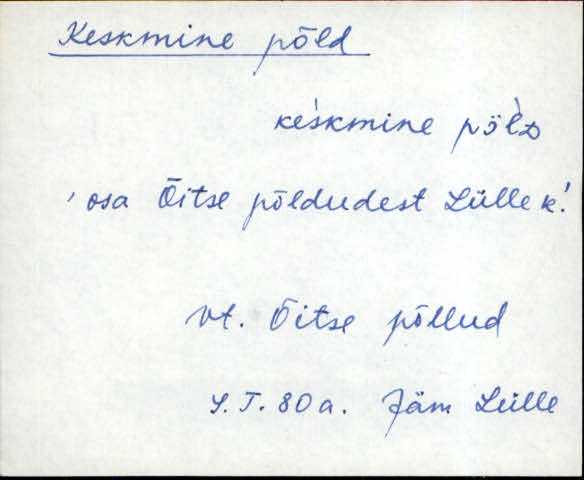 Keskmine põld
keskmine põlD
' osa Õitse põldudest Lülle k.'
vt. Õitse põllud
S.T. 80a. Jäm Lülle